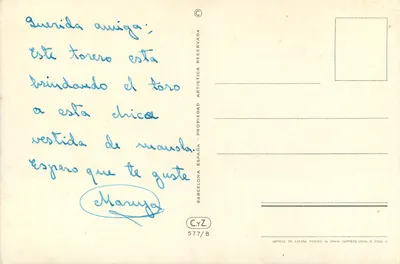 Querida amiga:
Este torero esta
brindando el toro
a esta chica
vestida de manola.
Espero que te guste
Maruja
©
BARCELONA ESPAÑA - PROPIEDAD ARTISTICA RESERVADA
CyZ
577/B